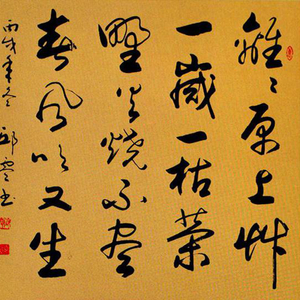 離〻原上艸
一歲一枯榮
野火燒不盡
春風吹又生
丙戌年冬 邱